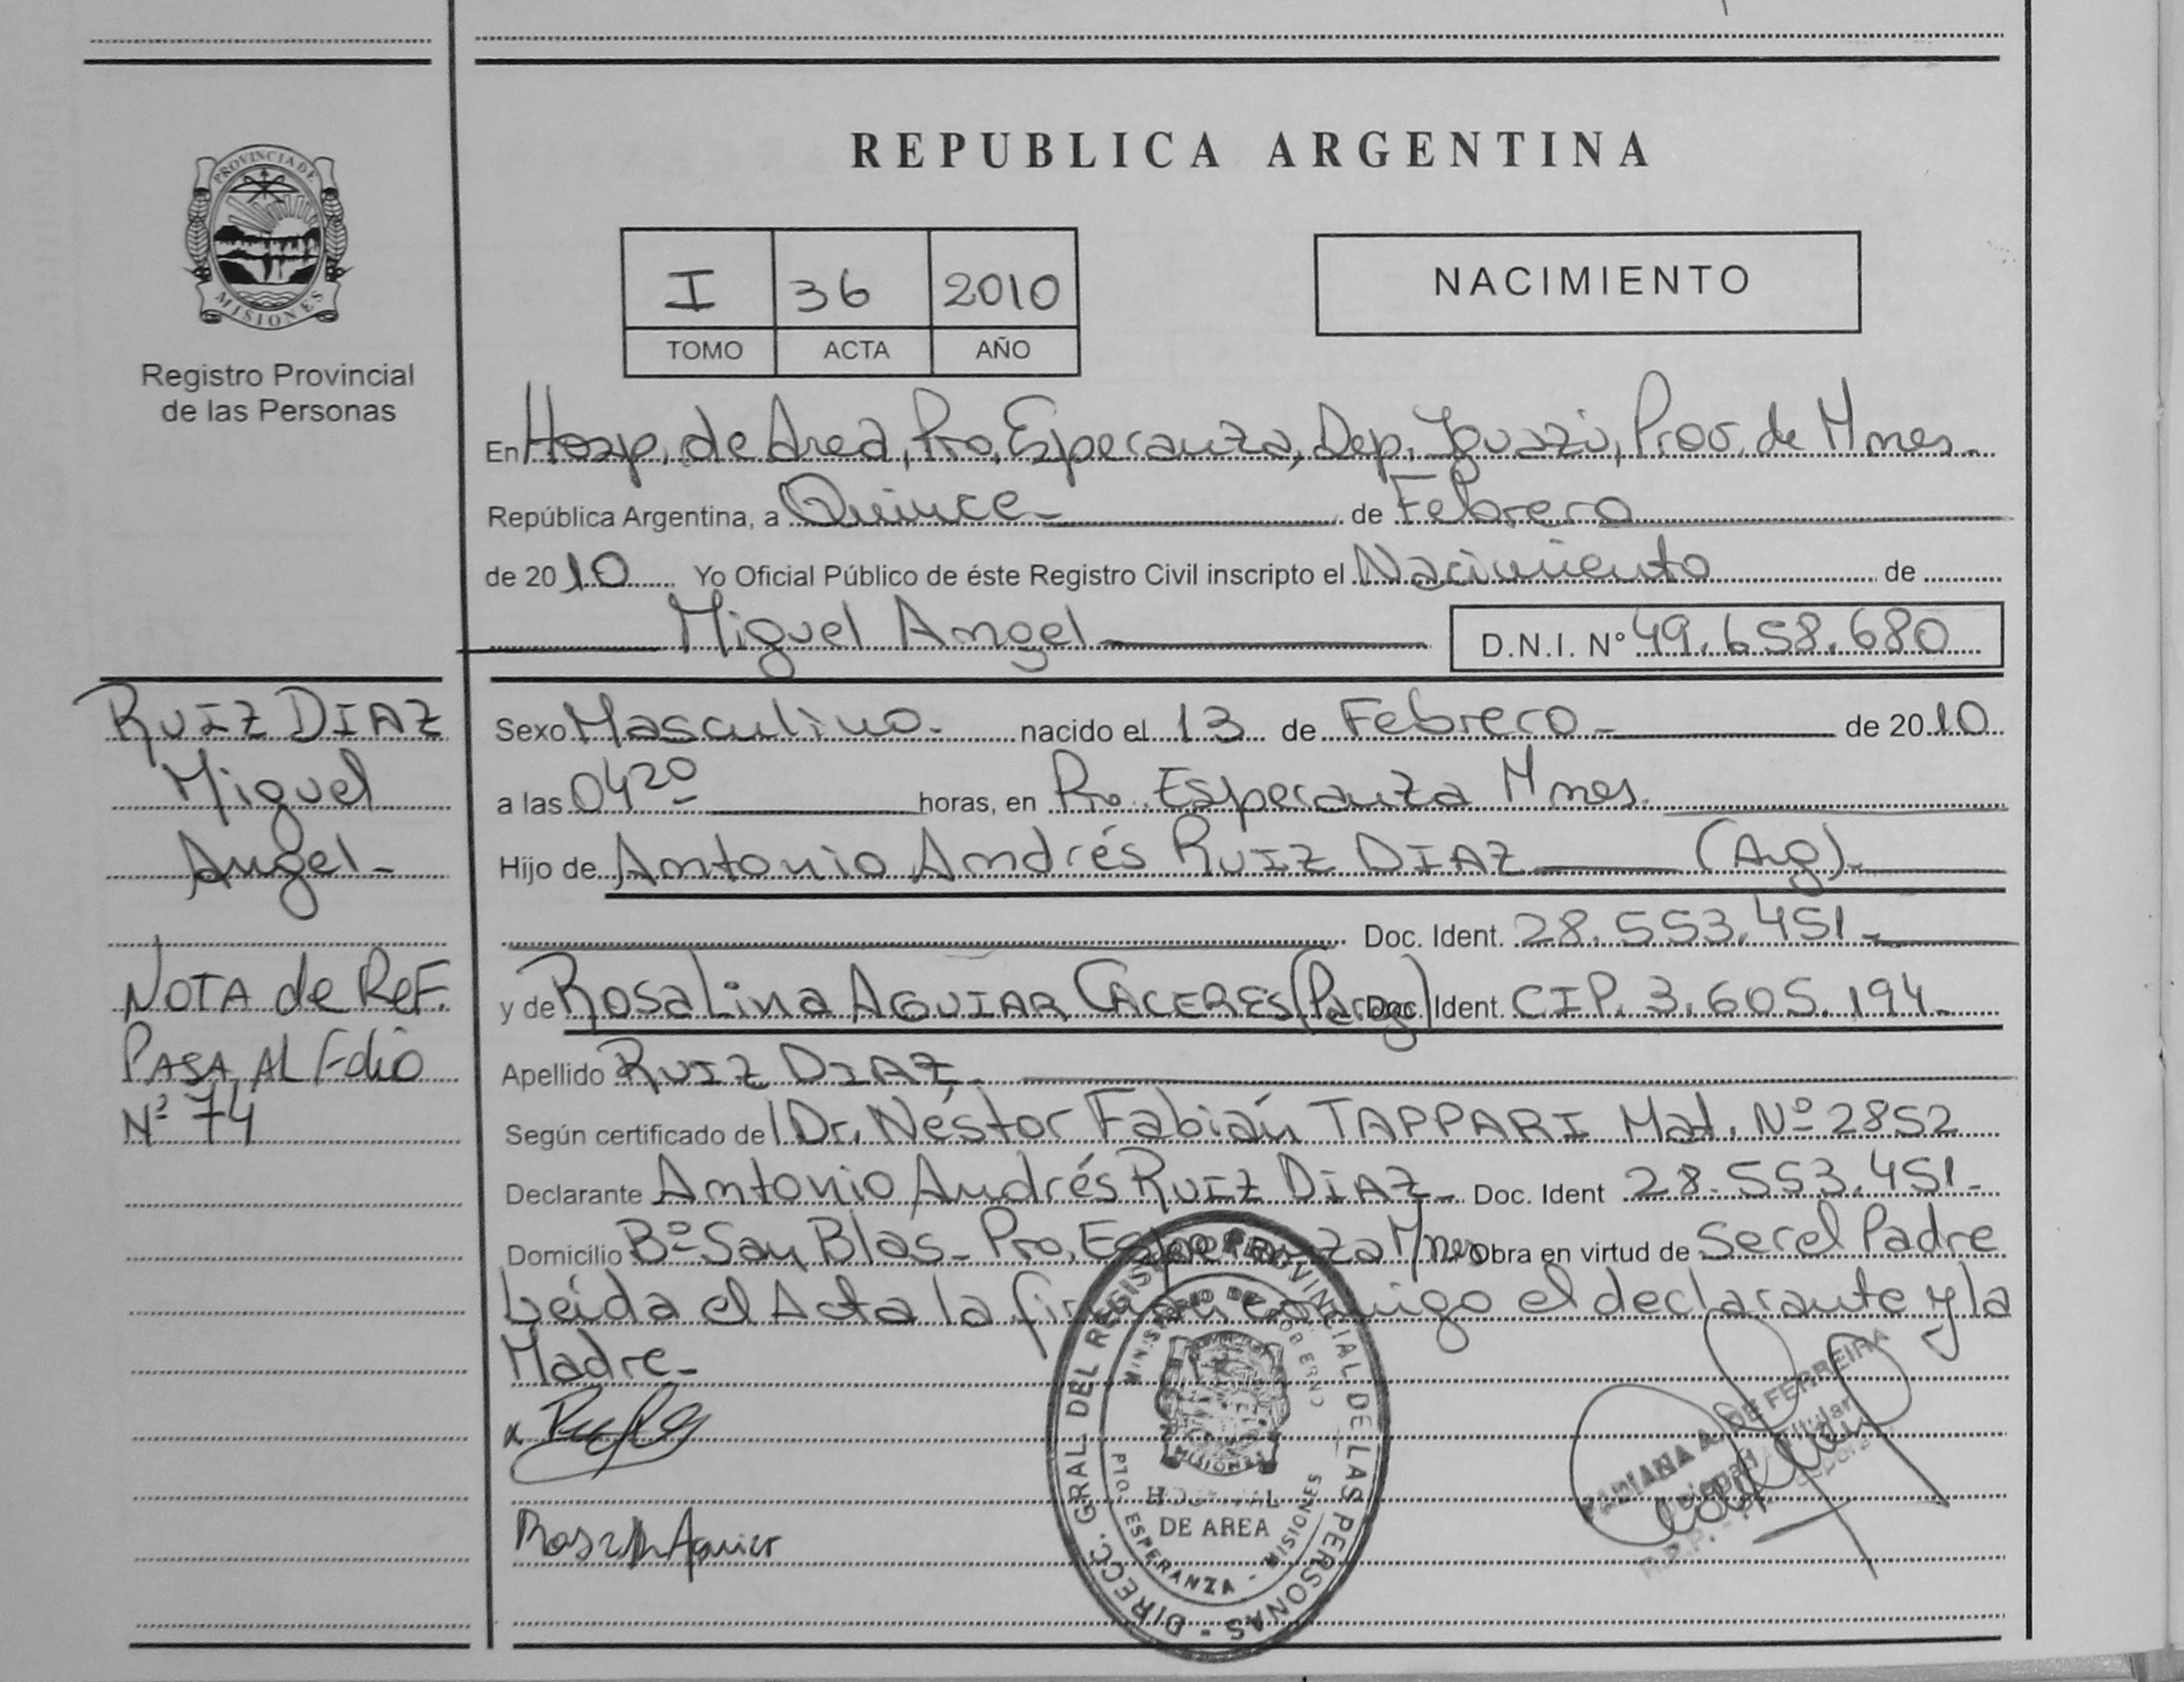 PROVINCIA DE
MISIONES
Registro Provincial
de las Personas
REPUBLICA ARGENTINA
I 36 2010
TOMO ACTA AÑO
NACIMIENTO
En Hosp. de Area, Pto. Esperanza, Dep. Iguazú, Prov. de Mnes.
República Argentina, a Quince de Febrero
de 2010 Yo Oficial Público de éste Registro Civil inscripto el Nacimiento de
Miguel Angel D.N.I. Nº 49.658.680
RUIZ DIAZ
Miguel
Angel
NOTA de REF.
PASA AL Folio
Nº 74
Sexo Masculino nacido el 13 de Febrero de 2010
a las 04 20 horas, en Pto. Esperanza Mnes.
Hijo de Antonio Andrés RUIZ DIAZ (Arg)
Doc. Ident. 28.553.451
y de Rosalina AGUIAR CACERES (Parag) Doc. Ident. CIP. 3.605.194
Apellido RUIZ DIAZ
Según certificado del Dr. Néstor Fabián TAPPARI Mat. Nº 2852
Declarante Antonio Andrés RUIZ DIAZ Doc. Ident 28.553.451
Domicilio Bº San Blas - Pto. Esperanza Mnes Obra en virtud de Ser el Padre
Leida el Acta la firman conmigo el declarante y la
Madre
DIRECC. GRAL. DEL REGISTRO PROVINCIAL DE LAS PERSONAS
MINISTERIO DE GOBIERNO
MISIONES
HOSPITAL
DE AREA
PTO. ESPERANZA - MISIONES
FABIANA A. DE FERREIRA
Titular